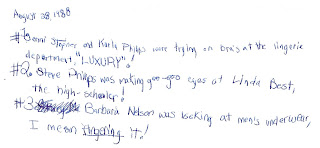 August 28, 1988
#1. Danni Stepner and Karla Philps were trying on bra's at the lingerie
department, "LUXURY"!
#2. Steve Philps was making goo-goo eyes at Linda Best,
the high-schooler!
#3 Barbara Nelson was looking at men's underwear,
I mean fingering it!